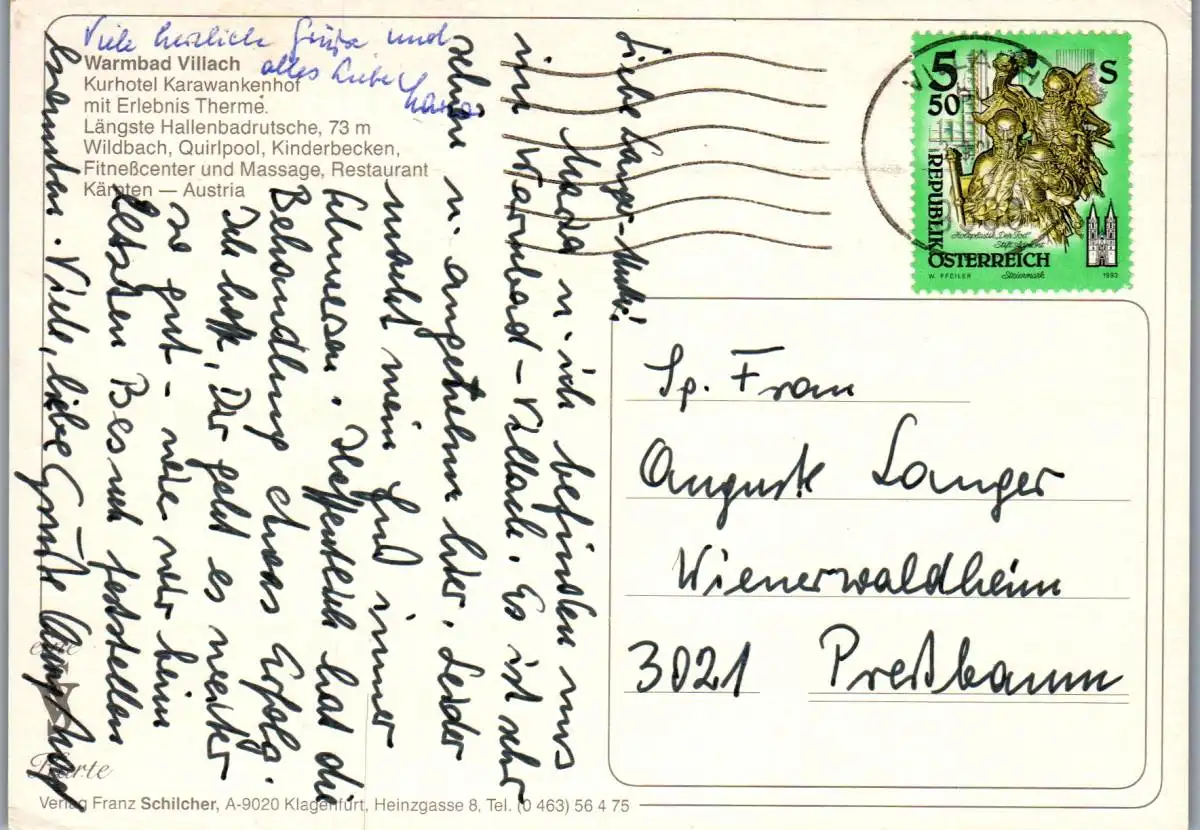 Viele herzliche Grüße und
alles Liebe
Warmbad Villach
Kurhotel Karawankenhof
mit Erlebnis Therme.
Längste Hallenbadrutsche, 73 m
Wildbach, Quirlpool, Kinderbecken,
Fitneßcenter und Massage, Restaurant
Kärnten — Austria
Liebe Langer-Mutti!
u. ich befinden uns
im Warmbad-Villach. Es ist sehr
schön u. angenehm hier. Leider
macht mein immer
Schmerzen. Hoffentlich hat die
Behandlung etwas Erfolg.
Ich hoffe, Dir geht es weiter
so gut – wie wir beim
letzten Besuch feststellen
konnten. Viele, liebe Grüße
5 50 S
REPUBLIK
ÖSTERREICH
Holzplastik „Der Tod"
Stift Admont
Steiermark
W. PFEILER
1993
Sp. Frau
Auguste Langer
Wienerwaldheim
3021 Preßbaum
eine
Karte
Verlag Franz Schilcher, A-9020 Klagenfurt, Heinzgasse 8, Tel. (0 463) 56 4 75